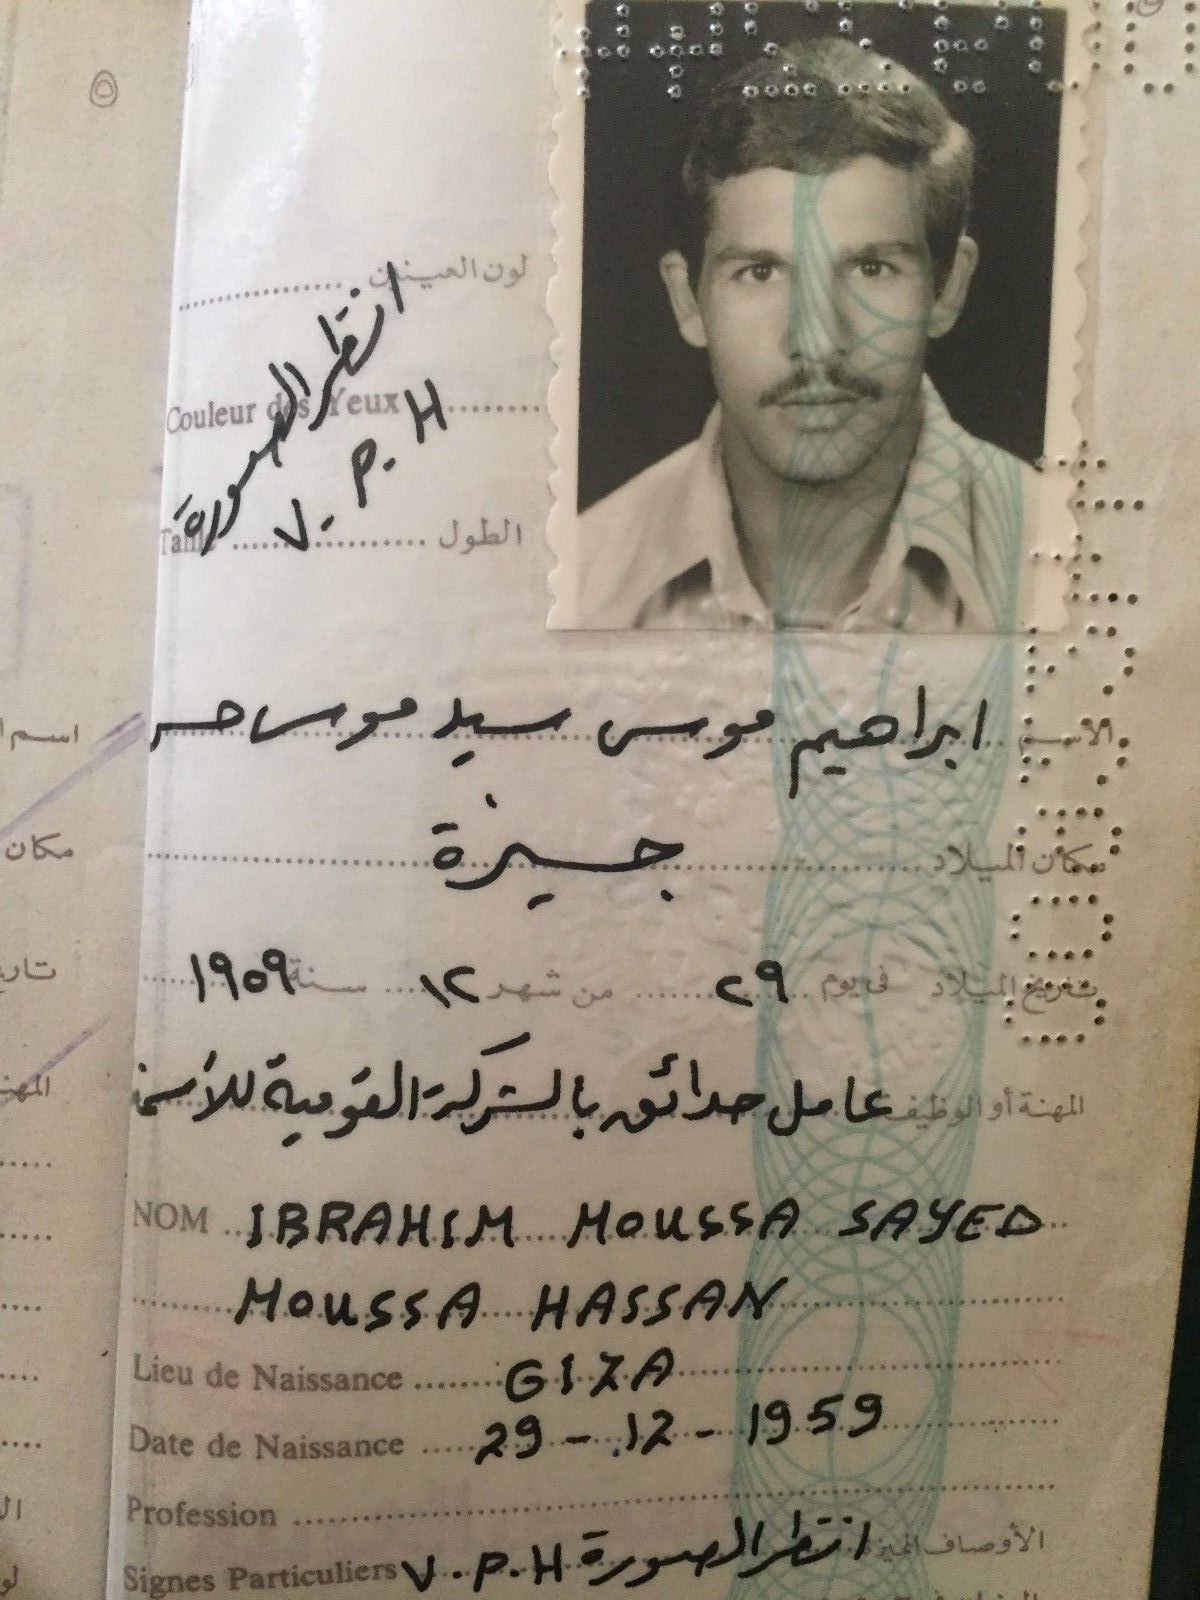 لون العينين
انظر الصورة
Couleur des Yeux
V. P. H
Taille الطول
الاسم ابراهيم موسى سيد موسى
مكان الميلاد جيزة
تاريخ الميلاد فى يوم ٢٩ من شهر ١٢ سنة ١٩٥٩
المهنة أو الوظيفة عامل حدائق بالشركة القومية
NOM IBRAHIM MOUSSA SAYED
MOUSSA HASSAN
Lieu de Naissance GIZA
Date de Naissance 29 - 12 - 1959
Profession
الأوصاف المميزة انظر الصورة
Signes Particuliers V. P. H
مكان